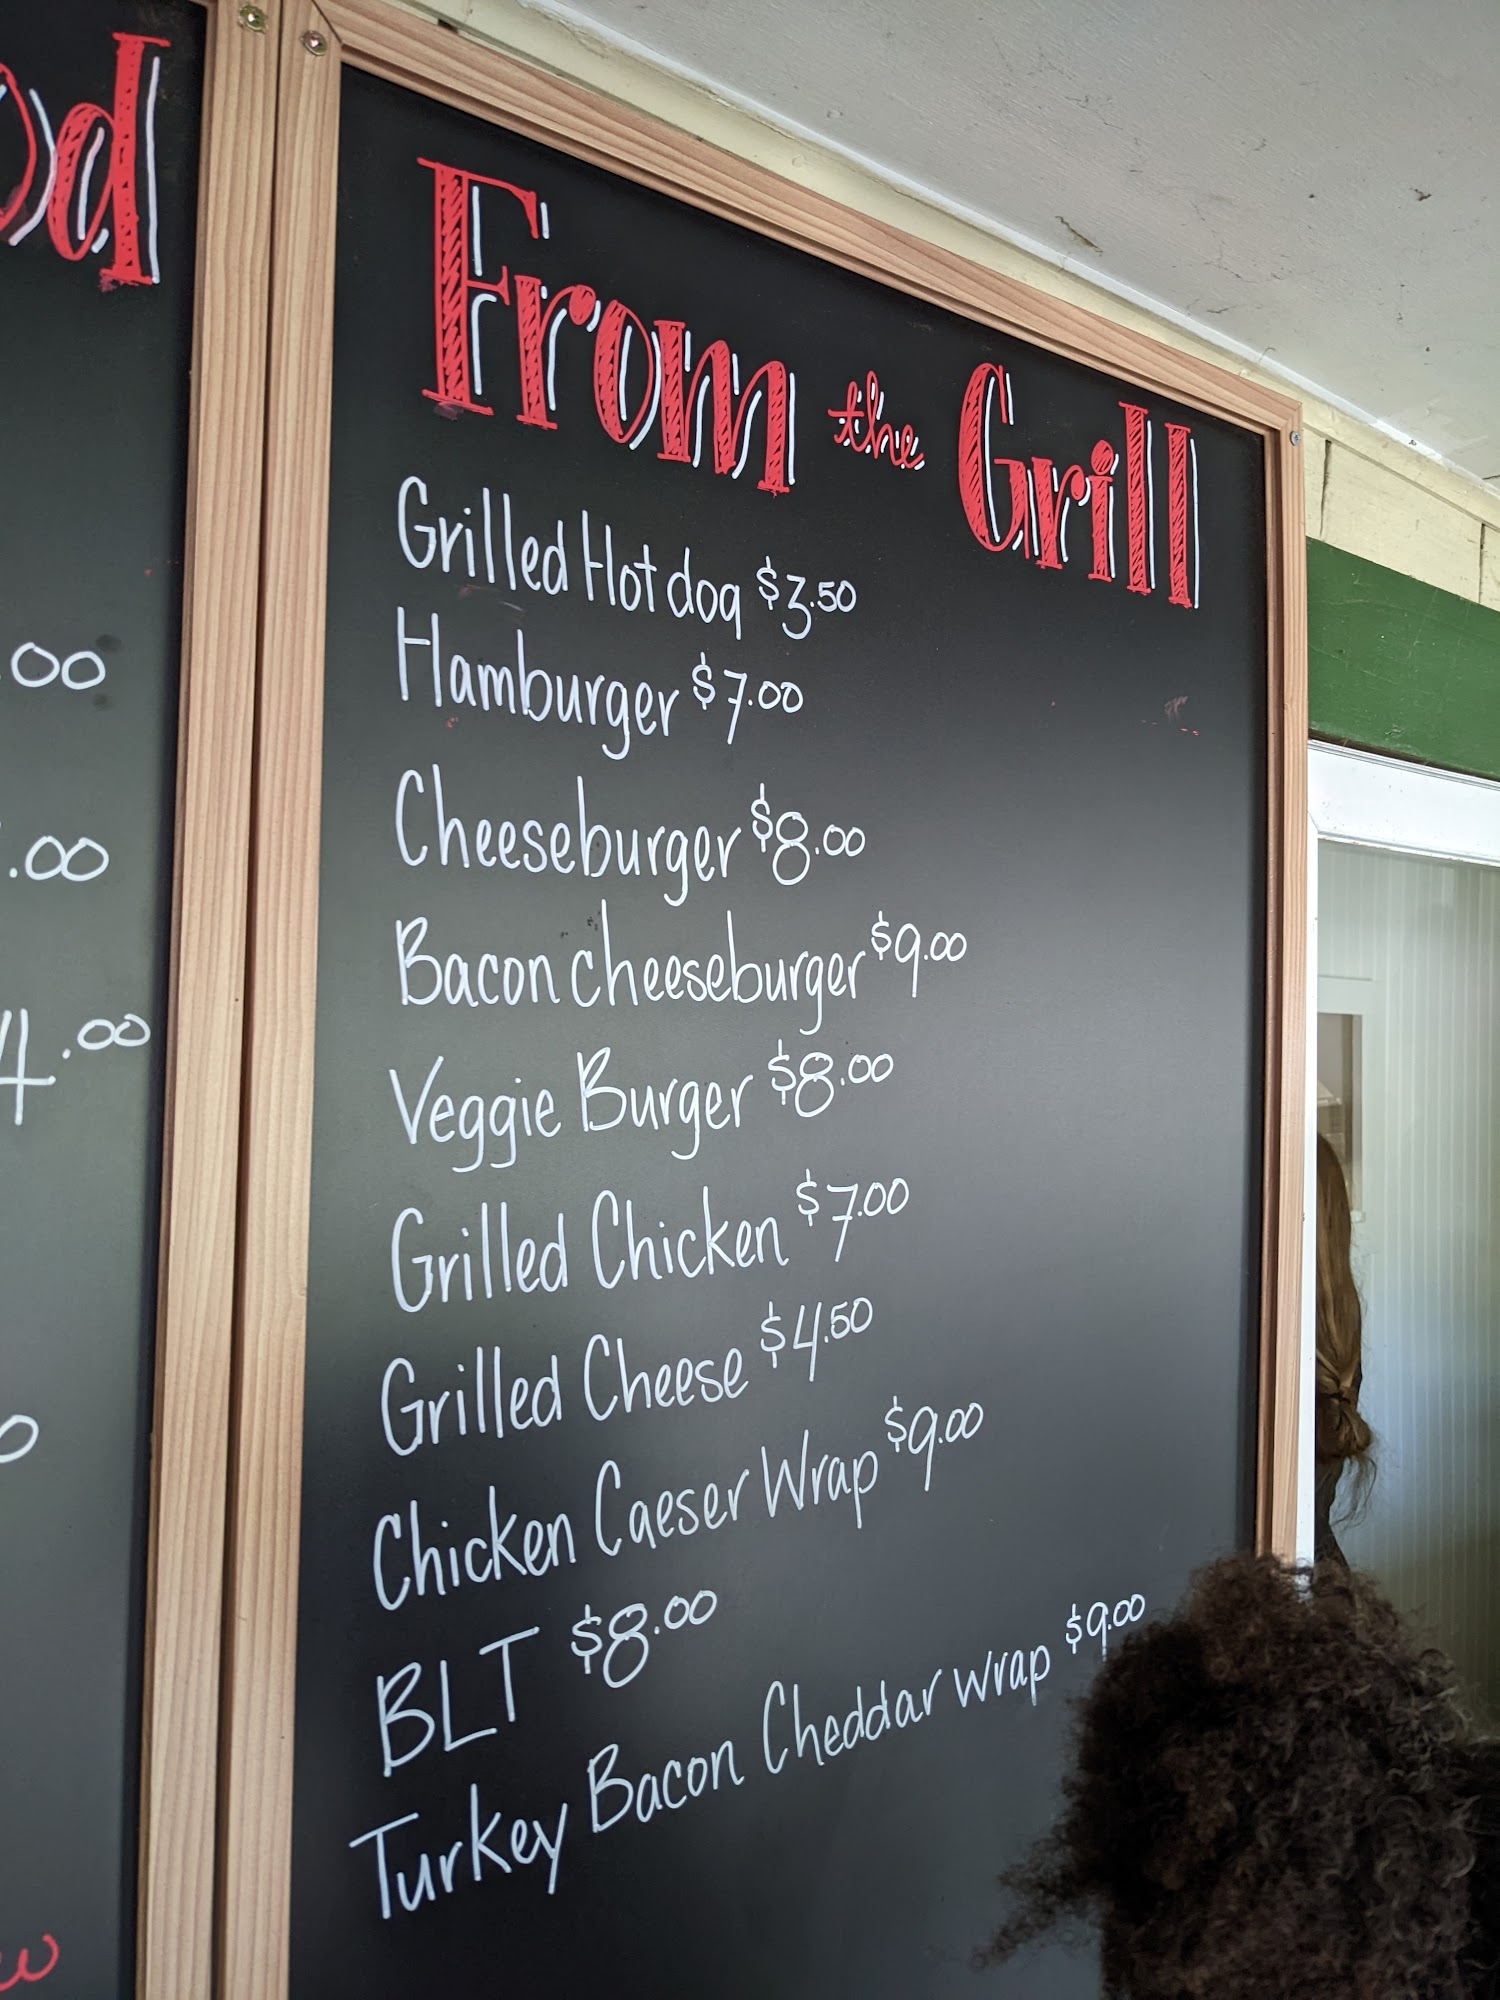 od
.00
.00
4.00
From the Grill
Grilled Hotdog $3.50
Hamburger $7.00
Cheeseburger $8.00
Bacon cheeseburger $9.00
Veggie Burger $8.00
Grilled Chicken $7.00
Grilled Cheese $4.50
Chicken Caeser Wrap $9.00
BLT $8.00
Turkey Bacon Cheddar wrap $9.00